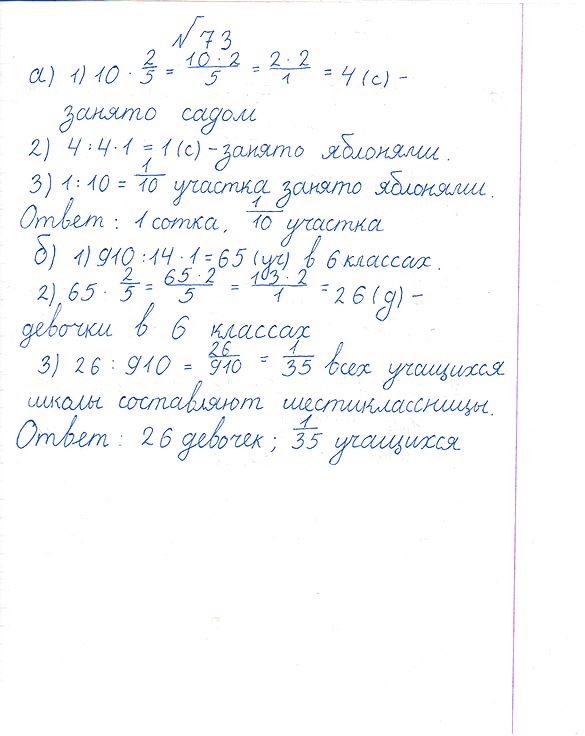 №73
а) 1) 10 · 2/5 = 10·2/5 = 2·2/1 = 4 (с) –
занято садом
2) 4:4·1 = 1 (с) – занято яблонями.
3) 1:10 = 1/10 участка занято яблонями.
Ответ: 1 сотка, 1/10 участка
б) 1) 910:14·1 = 65 (уч) в 6 классах.
2) 65 · 2/5 = 65·2/5 = 13·2/1 = 26 (д) –
девочки в 6 классах
3) 26 : 910 = 26/910 = 1/35 всех учащихся
школы составляют шестиклассницы.
Ответ: 26 девочек; 1/35 учащихся